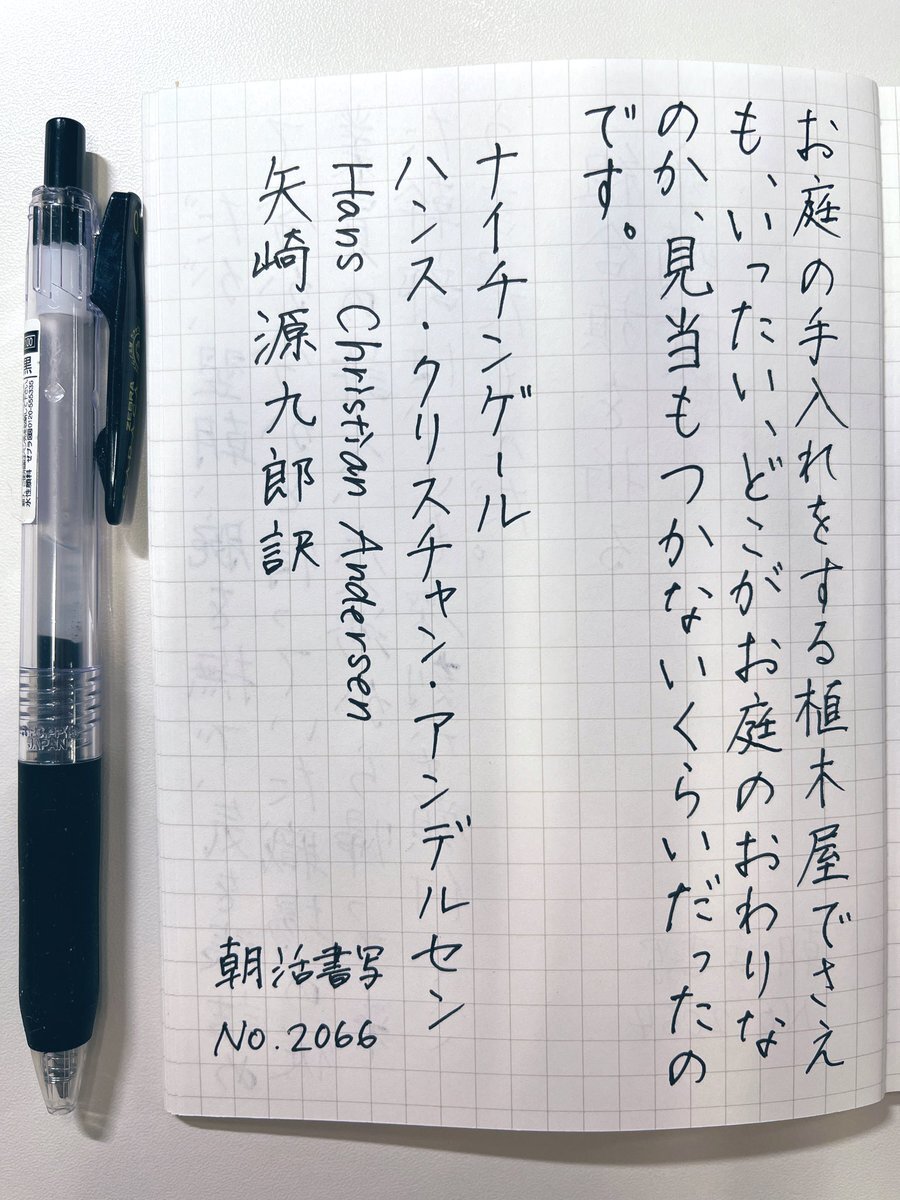 お庭の手入れをする植木屋でさえ
も、いったい、どこがお庭のおわりな
のか、見当もつかないくらいだったの
です。
ナイチンゲール
ハンス・クリスチャン・アンデルセン
Hans Christian Andersen
矢崎源九郎訳
朝活書写
No.2066
ZEBRA
黒
JAPAN